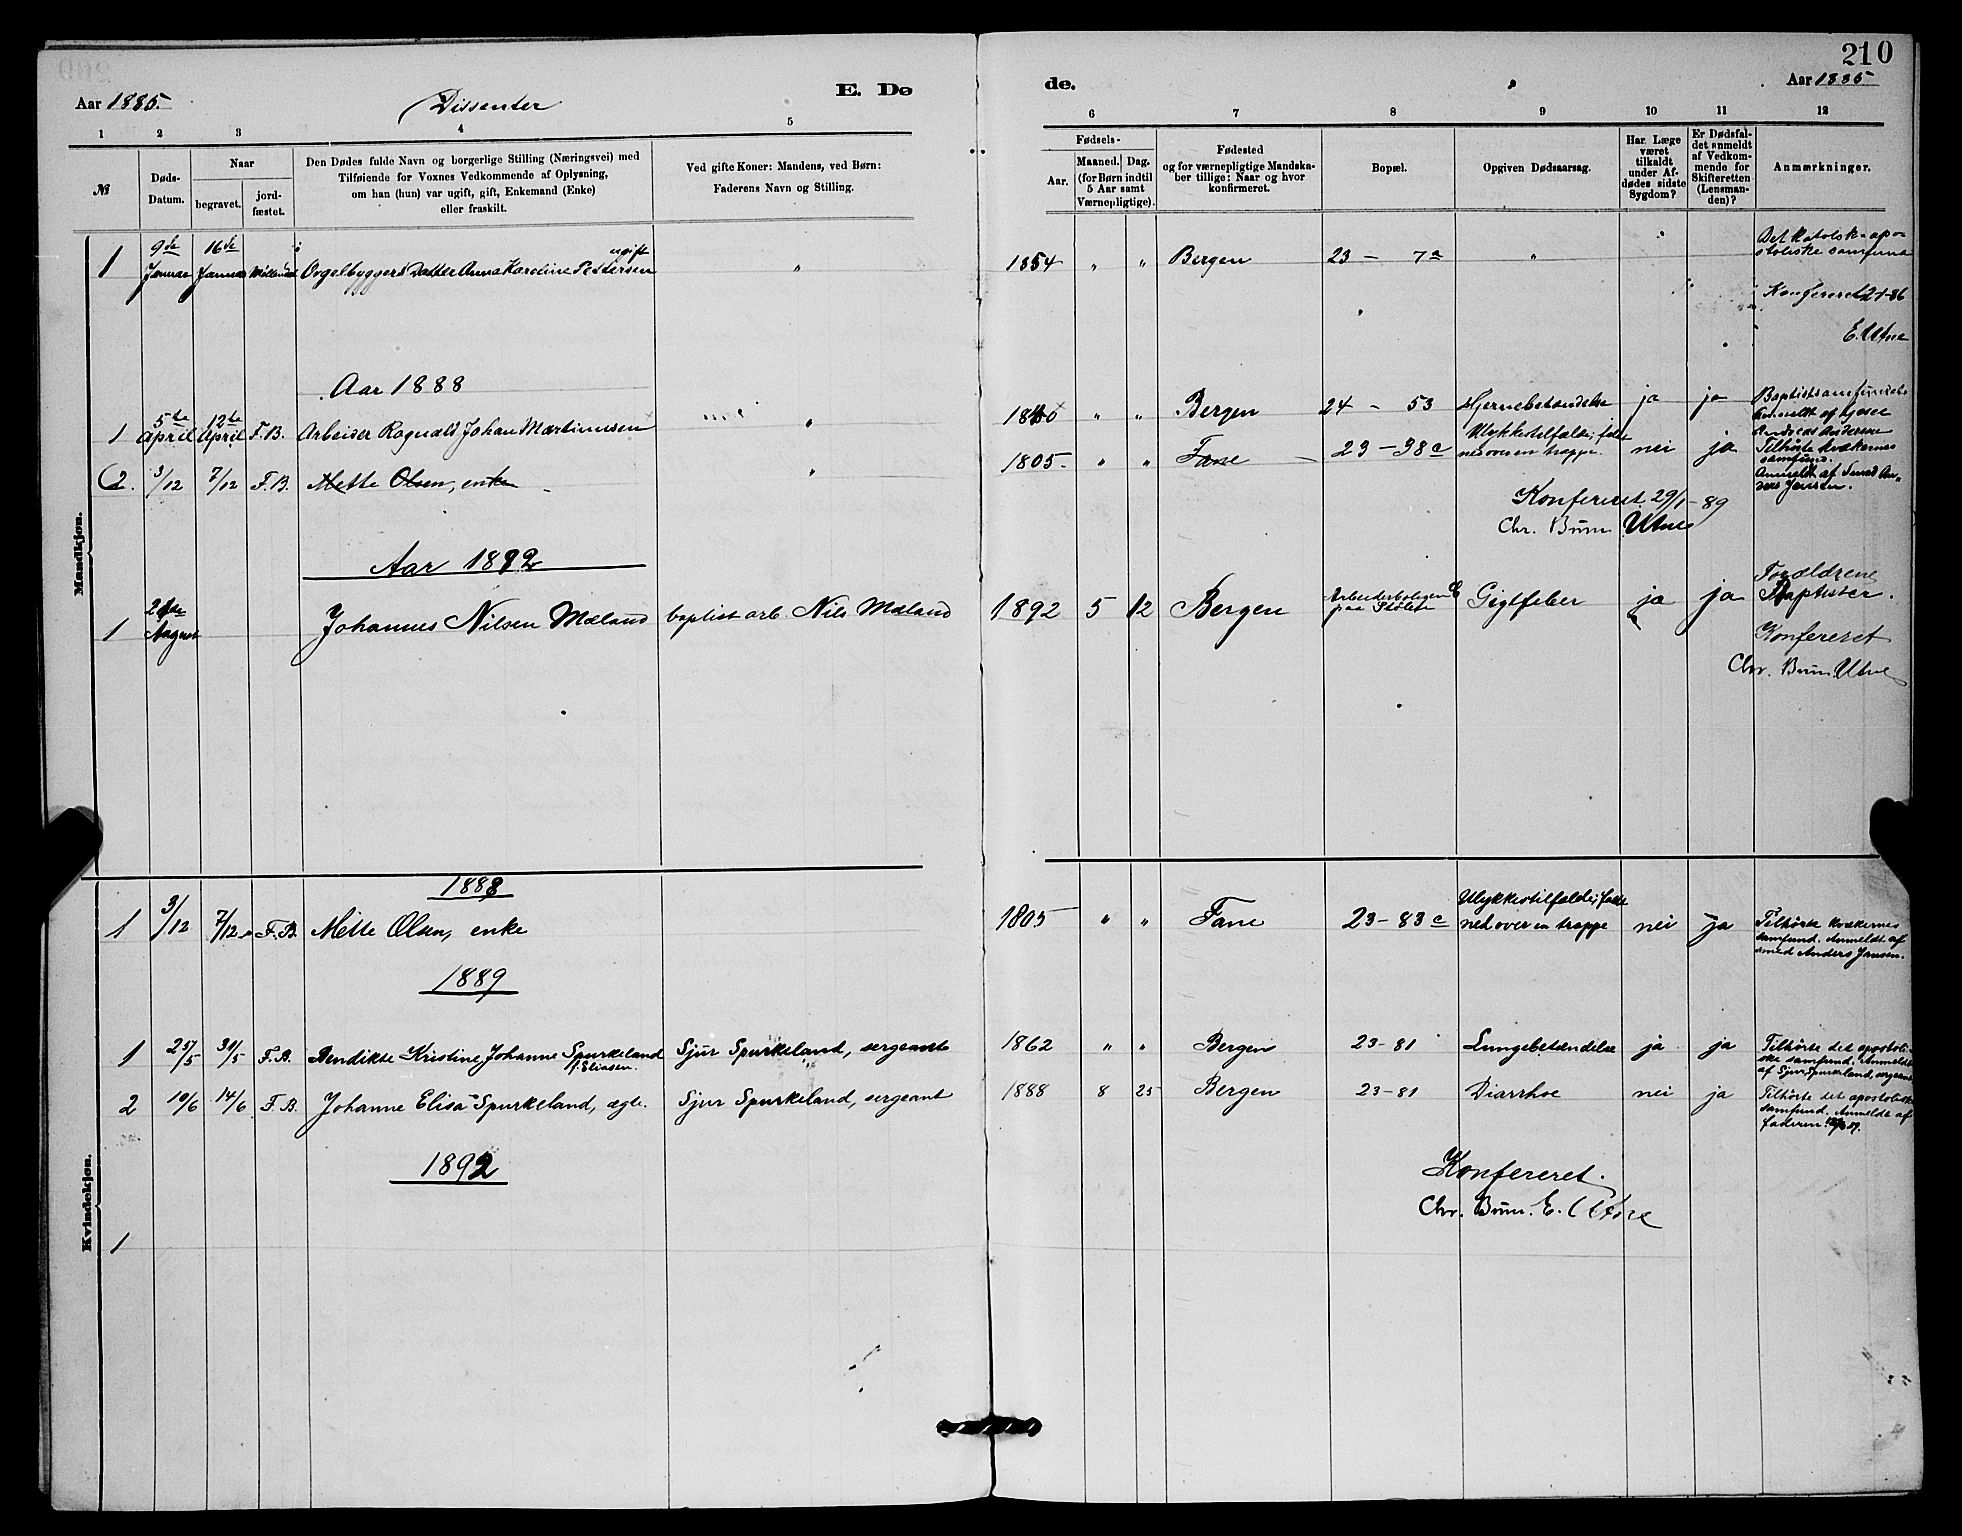 210
Aar 1885. Dissenter E. Dø de. Aar 1885
1 2 3 4 5 6 7 8 9 10 11 12
№
Døds-
Datum.
Naar
begravet.
jord-
fæstet.
Den Dødes fulde Navn og borgerlige Stilling (Næringsvei) med
Tilføiende for Voxnes Vedkommende af Oplysning,
om han (hun) var ugift, gift, Enkemand (Enke)
eller fraskilt.
Ved gifte Koner: Mandens, ved Børn:
Faderens Navn og Stilling.
Fødsels-
Aar.
Maaned. Dag.
(for Børn indtil
5 Aar samt
Værnepligtige).
Fødested
og for værnepligtige Mandska-
ber tillige: Naar og hvor
konfirmeret.
Bopæl.
Opgiven Dødsaarsag.
Har Læge
været
tilkaldt
under Af-
dødes sidste
Sygdom?
Er Dødsfal-
det anmeldt
af Vedkom-
mende for
Skifteretten
(Lensman-
den)?
Anmærkninger.
Mandkjøn.
9de 16de ugift
1 Januar Januar Møllendal Orgelbyggers Datter Anna Karoline Pettersen " 1854 " " Bergen 23 - 7a "
Det katolsk-apo-
stoliske samfund
Konfereret 2/1-86
E. Utne
Aar 1888
5te 12te
1 April April F.B. Arbeider Ragnald Johan Martinusen " 1840 " " Bergen 24 - 53 Hjernebetændelse ja ja
Baptistsamfundet.
Anmeldt af
Andreas Andersen
2. 3/12 7/12 F.B. Mette Olsen, enke " 1805. " " Fane 23 - 38c
Ulykkestilfælde; faldt
ned over en trappe. nei ja
Tilhørte kvækernes
samfund.
Anmeldt af Smed An-
ders Jansen.
Konfereret 29/1-89
Chr. Bruun Utne
Aar 1892
1 August Johannes Nilsen Mæland baptist arb. Nils Mæland 1892 5 12 Bergen
Arbeiderboligen
paa Stølen Gigtfeber ja ja
Forældrene
Baptister.
Konfereret
Chr. Bruun. Utne
Kvindekjøn.
1888
1 3/12 7/12 F.B. Mette Olsen, enke 1805 " " Fane 23-83c
Ulykkestilfælde; faldt
ned over en trappe nei ja
Tilhørte kvækernes
samfund. Anmeldt af
smed Anders Jansen.
1889
1 25/5 31/5 F.B. Bendikte Kristine Johanne Spurkeland
f. Eliasen. Sjur Spurkeland, sergeant 1862 " " Bergen 23-81 Lungebetændelse ja ja
Tilhørte det apostoli-
ske samfund. Anmeldt
af Sjur Spurkeland, sergeant
2 10/6 14/6 F.B. Johanne Elisa Spurkeland, ægte. Sjur Spurkeland, sergeant 1888 8 25 Bergen 23-81 Diarrhoe nei ja
Tilhørte det apostoliske
samfund. Anmeldt af
faderen
1892
Konfereret.
Chr. Bruun. E. Utne
1